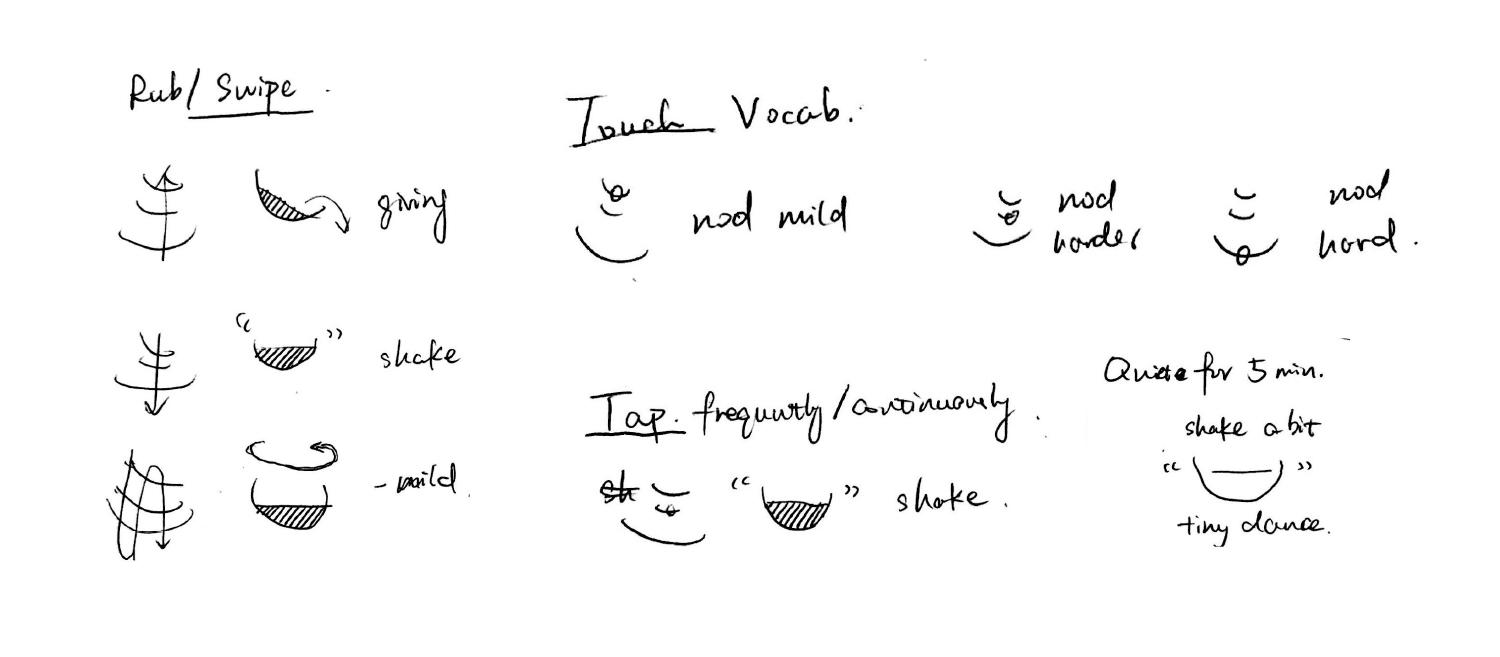 Rub/Swipe.
giving
shake
-mild.
Touch Vocab.
nod mild
nod
harder
nod
hard.
Tap. frequently/continuously.
sh
shake.
Quite for 5 min.
shake a bit
tiny dance.